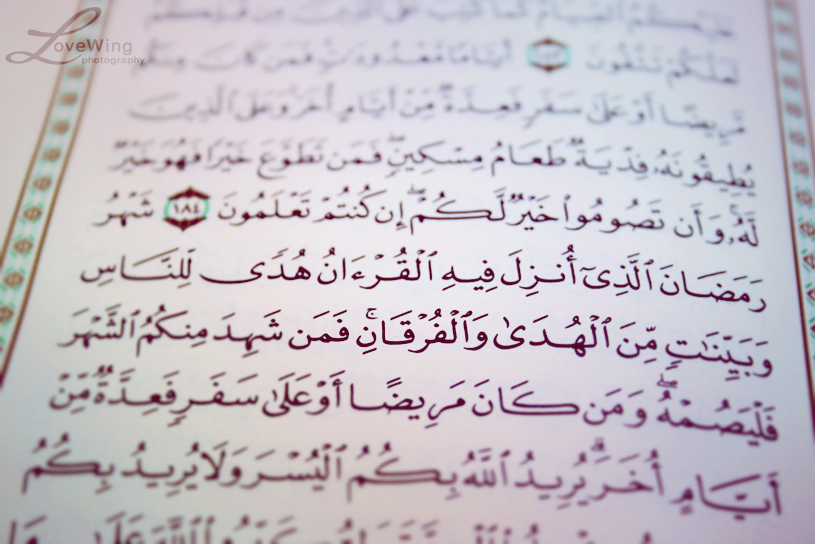 LoveWing
photography
عَلَيْكُمُ ٱلصِّيَامُ كَمَا كُتِبَ عَلَى ٱلَّذِينَ مِن قَبْلِكُمْ
لَعَلَّكُمْ تَتَّقُونَ ١٨٣ أَيَّامًا مَّعْدُودَٰتٍ فَمَن كَانَ مِنكُم
مَّرِيضًا أَوْ عَلَىٰ سَفَرٍ فَعِدَّةٌ مِّنْ أَيَّامٍ أُخَرَ وَعَلَى ٱلَّذِينَ
يُطِيقُونَهُۥ فِدْيَةٌ طَعَامُ مِسْكِينٍ ۖ فَمَن تَطَوَّعَ خَيْرًا فَهُوَ خَيْرٌ
لَّهُۥ ۚ وَأَن تَصُومُوا۟ خَيْرٌ لَّكُمْ ۖ إِن كُنتُمْ تَعْلَمُونَ ١٨٤ شَهْرُ
رَمَضَانَ ٱلَّذِىٓ أُنزِلَ فِيهِ ٱلْقُرْءَانُ هُدًى لِّلنَّاسِ
وَبَيِّنَٰتٍ مِّنَ ٱلْهُدَىٰ وَٱلْفُرْقَانِ ۚ فَمَن شَهِدَ مِنكُمُ ٱلشَّهْرَ
فَلْيَصُمْهُ ۖ وَمَن كَانَ مَرِيضًا أَوْ عَلَىٰ سَفَرٍ فَعِدَّةٌ مِّنْ
أَيَّامٍ أُخَرَ ۗ يُرِيدُ ٱللَّهُ بِكُمُ ٱلْيُسْرَ وَلَا يُرِيدُ بِكُمُ